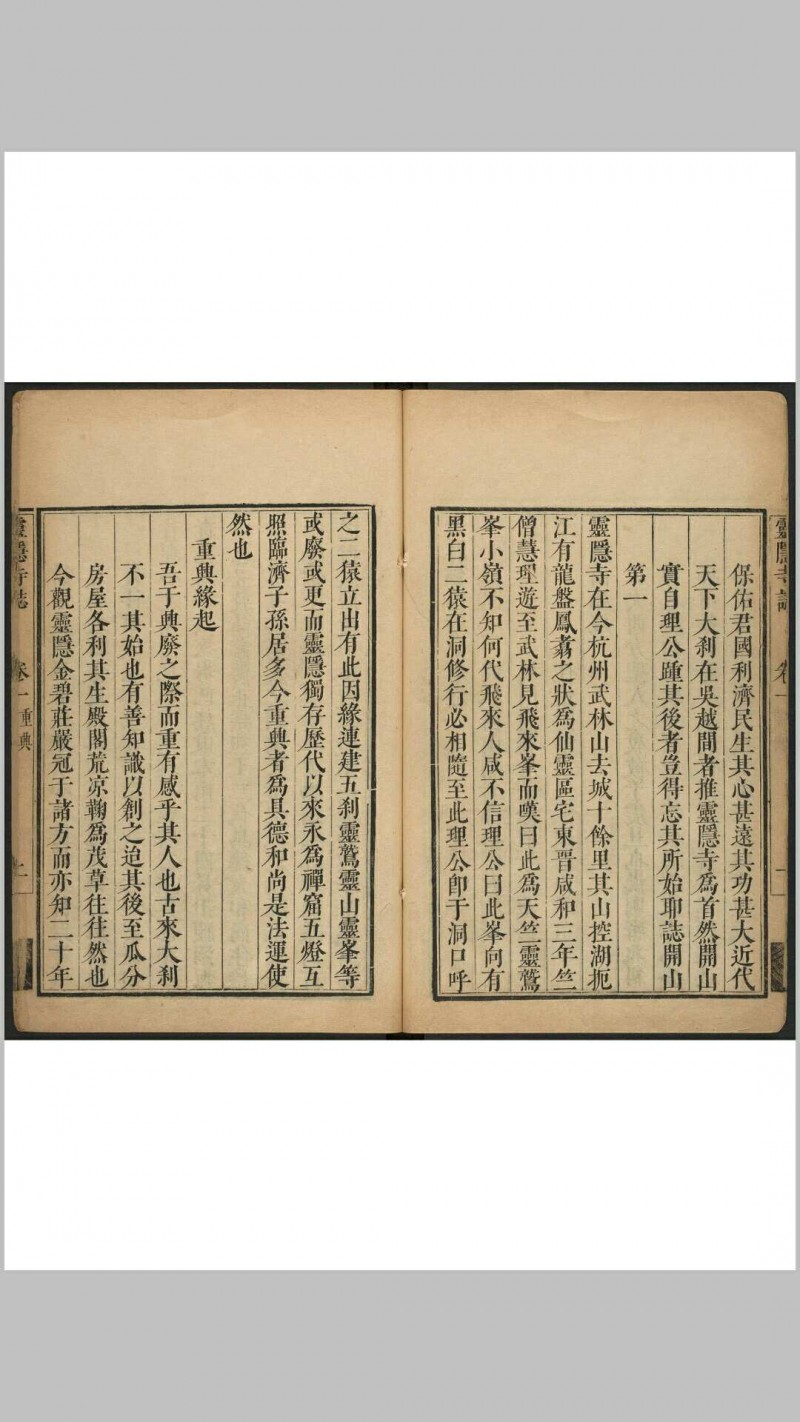 保佑君國利濟民生其心甚遠其功甚大近代
天下大刹在吳越間者推靈隱寺爲首然開山
實自理公踵其後者豈得忘其所始耶誌開山
第一
靈隱寺在今杭州武林山去城十餘里其山控湖扼
江有龍盤鳳翥之狀爲仙靈區宅東晋咸和三年竺
僧慧理遊至武林見飛來峯而嘆曰此爲天竺靈鷲
峯小嶺不知何代飛來人咸不信理公曰此峯向有
黑白二猿在洞修行必相隨至此理公卽于洞口呼
之二猿立出有此因緣連建五刹靈鷲靈山靈峯等
或廢或更而靈隱獨存歷代以來永爲禪窟五燈互
照臨濟子孫居多今重興者爲具德和尚是法運使
然也
重興緣起
吾于興廢之際而重有感乎其人也古來大刹
不一其始也有善知識以創之迨其後至瓜分
房屋各利其生殿閣荒凉鞠爲茂草往往然也
今觀靈隱金碧莊嚴冠于諸方而亦知二十年
靈隱寺誌 卷一 重興